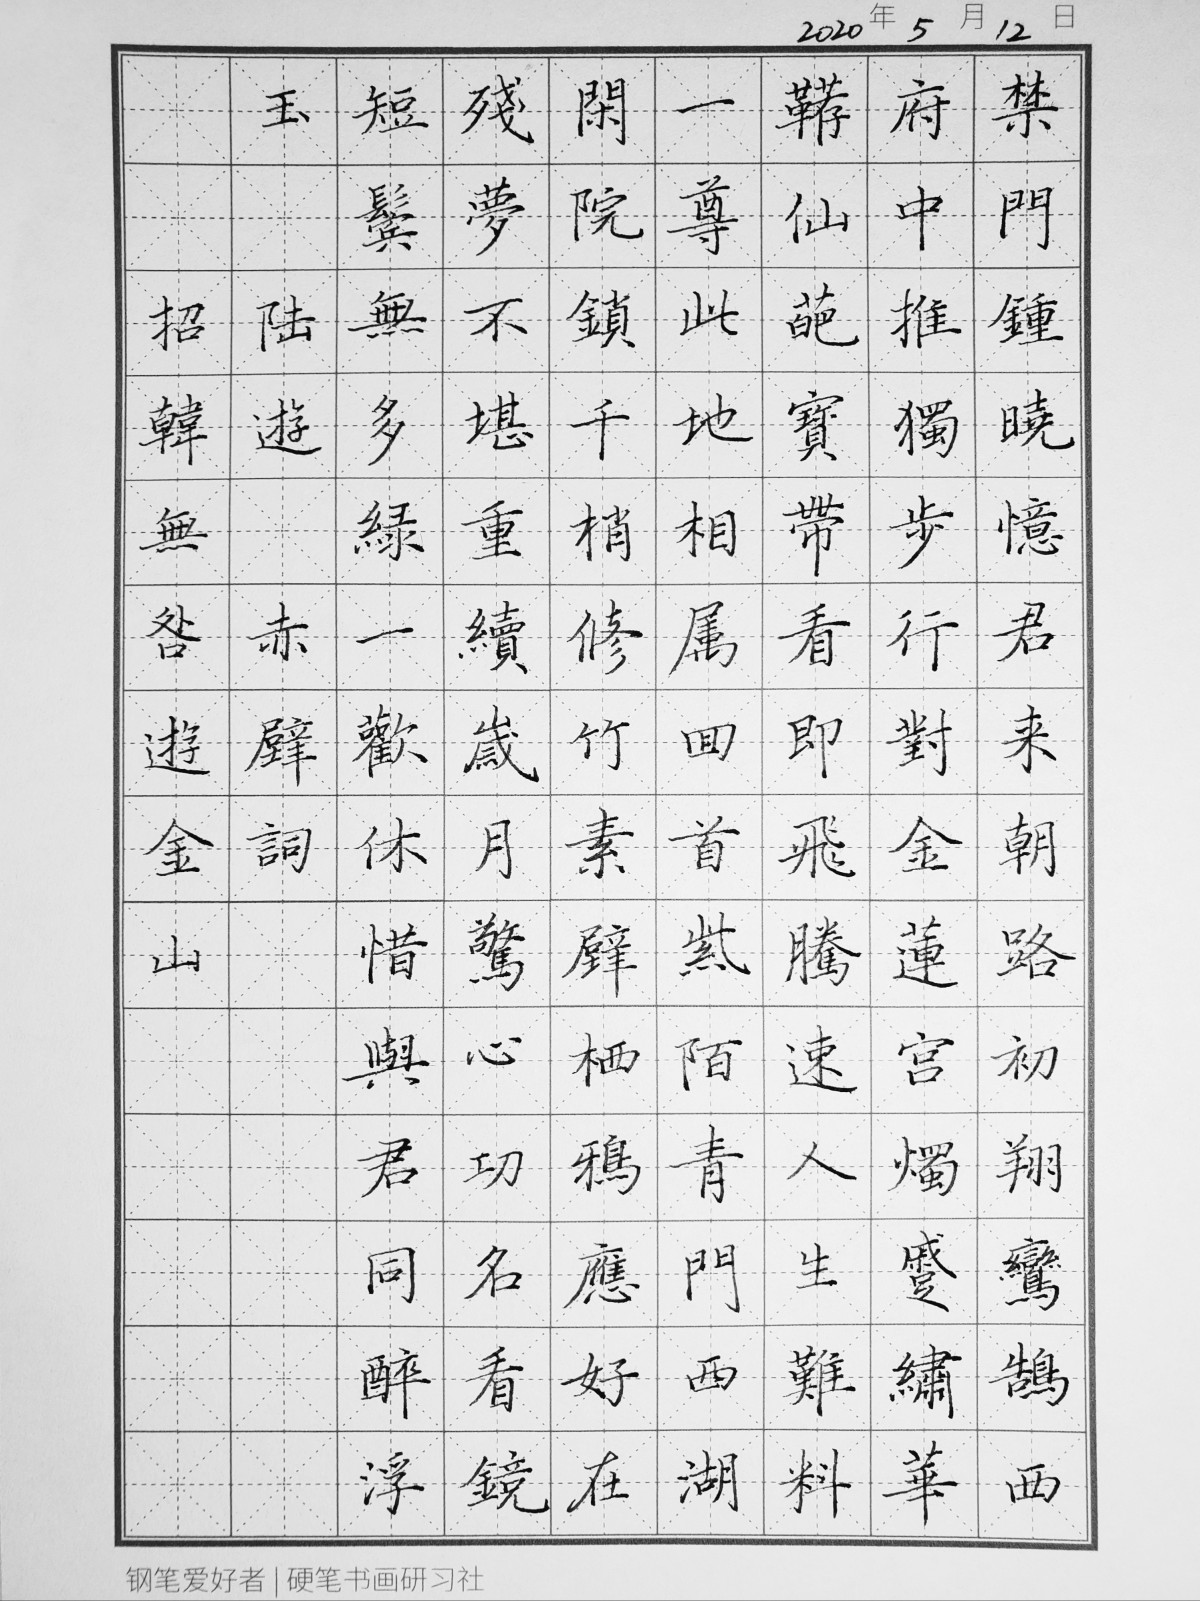 2020年5月12日
禁門鍾曉憶君来朝路初翔鸞鵠西
府中推獨步行對金蓮宫燭蹙繡華
鞯仙葩寶帶看即飛騰速人生難料
一尊此地相属囬首紫陌青門西湖
閑院鎖千梢修竹素壁栖鴉應好在
殘夢不堪重續歲月驚心功名看鏡
短鬢無多緑一歡休惜與君同醉浮
玉 陆遊 赤壁詞
招韓無咎遊金山
钢笔爱好者|硬笔书画研习社